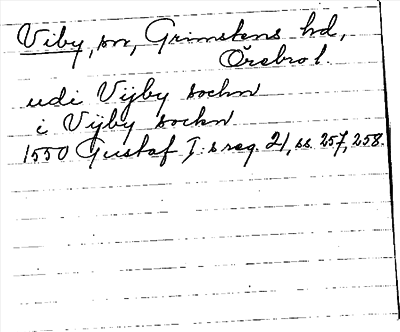 Viby, sn, Grimstens hd,
Örebro l.
udi Vijby sockn
i Vijby sockn
1550 Gustaf I:s reg. 21, ss. 257, 258.